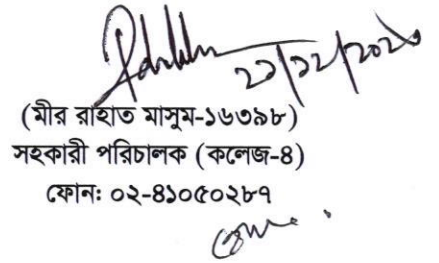 ২১/১২/২০২০
(মীর রাহাত মাসুম-১৬৩৯৮)
সহকারী পরিচালক (কলেজ-৪)
ফোন: ০২-৪১০৫০২৮৭